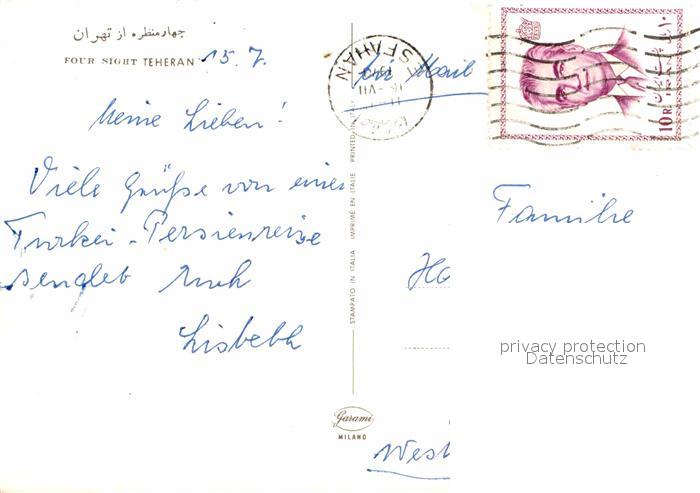 چهار منظره از تهران
FOUR SIGHT TEHERAN
15. 7.
Meine Lieben!
Viele Grüße von einer
Türkei-Persienreise
sendet Euch
Lisbeth
STAMPATO IN ITALIA IMPRIMÉ EN ITALIE PRINTED IN ITALY
Garami
MILANO
ESFAHAN
16-VII
Mail
10 R
Familie
Ha
West
privacy protection
Datenschutz